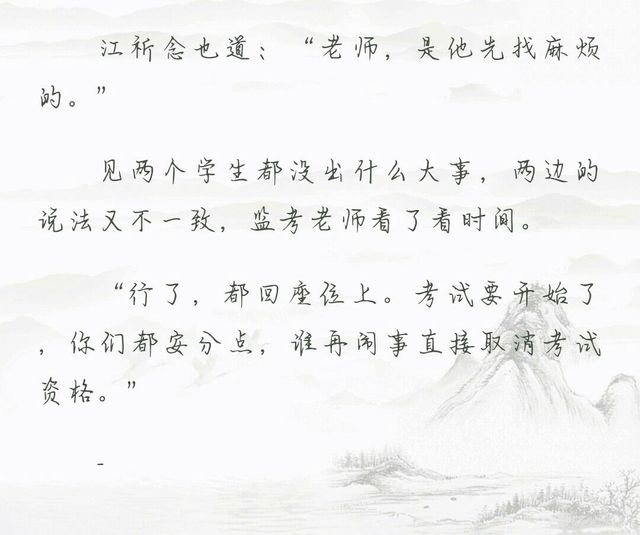 江祈念也道；“老师，是他先找麻烦
的。”
见两个学生都没出什么大事，两边的
说法又不一致，监考老师看了看时间。
“行了，都回座位上。考试要开始了
，你们都安分点，谁再闹事直接取消考试
资格。”
-